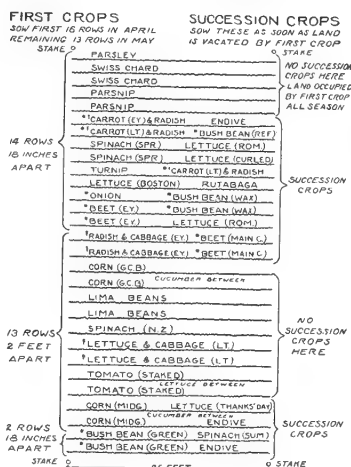 FIRST CROPS
SOW FIRST 16 ROWS IN APRIL
REMAINING 13 ROWS IN MAY
SUCCESSION CROPS
SOW THESE AS SOON AS LAND
IS VACATED BY FIRST CROP
STAKE
STAKE
PARSLEY
SWISS CHARD
SWISS CHARD
PARSNIP
PARSNIP
NO SUCCESSION
CROPS HERE
LAND OCCUPIED
BY FIRST CROP
ALL SEASON
*¹CARROT (EY.) & RADISH ENDIVE
*¹CARROT (LT) & RADISH *BUSH BEAN (REF)
SPINACH (SPR) LETTUCE (ROM.)
SPINACH (SPR) LETTUCE (CURLED)
TURNIP *¹CARROT (LT) & RADISH
LETTUCE (BOSTON) RUTABAGA
*ONION *BUSH BEAN (WAX)
*BEET (EY.) *BUSH BEAN (WAX)
*BEET (EY.) LETTUCE (ROM.)
14 ROWS
18 INCHES
APART
SUCCESSION
CROPS
¹RADISH & CABBAGE (EY.) *BEET (MAIN C.)
¹RADISH & CABBAGE (EY.) *BEET (MAIN C.)
CORN (G.C.B)
CUCUMBER BETWEEN
CORN (G.C.B)
LIMA BEANS
LIMA BEANS
SPINACH (N.Z.)
¹LETTUCE & CABBAGE (LT.)
¹LETTUCE & CABBAGE (LT)
TOMATO (STAKED)
LETTUCE BETWEEN
TOMATO (STAKED)
13 ROWS
2 FEET
APART
NO
SUCCESSION
CROPS
HERE
CORN (MIDG.) LETTUCE (THANKS' DAY)
CUCUMBER BETWEEN
CORN (MIDG) ENDIVE
*BUSH BEAN (GREEN) SPINACH (SUM)
*BUSH BEAN (GREEN) ENDIVE
2 ROWS
18 INCHES
APART
SUCCESSION
CROPS
STAKE
STAKE